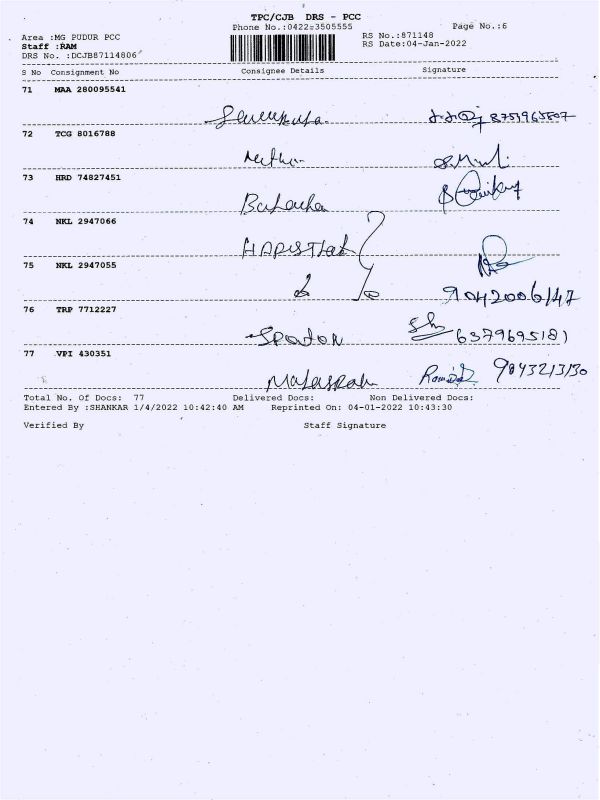 TPC/CJB DRS - PCC
Phone No.:0422-3505555 Page No.:6
Area :MG PUDUR PCC RS No.:871148
Staff :RAM RS Date:04-Jan-2022
DRS No. :DCJB87114806
S No Consignment No Consignee Details Signature
71 MAA 280095541
8751965807
72 TCG 8016788
73 HRD 74827451
74 NKL 2947066
75 NKL 2947055
9042006147
76 TRP 7712227
Spoton 6379695181
77 VPI 430351
9843213130
Total No. Of Docs: 77 Delivered Docs: Non Delivered Docs:
Entered By :SHANKAR 1/4/2022 10:42:40 AM Reprinted On: 04-01-2022 10:43:30
Verified By Staff Signature